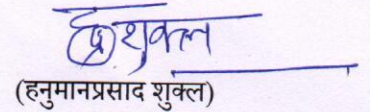 शुक्ल
(हनुमानप्रसाद शुक्ल)